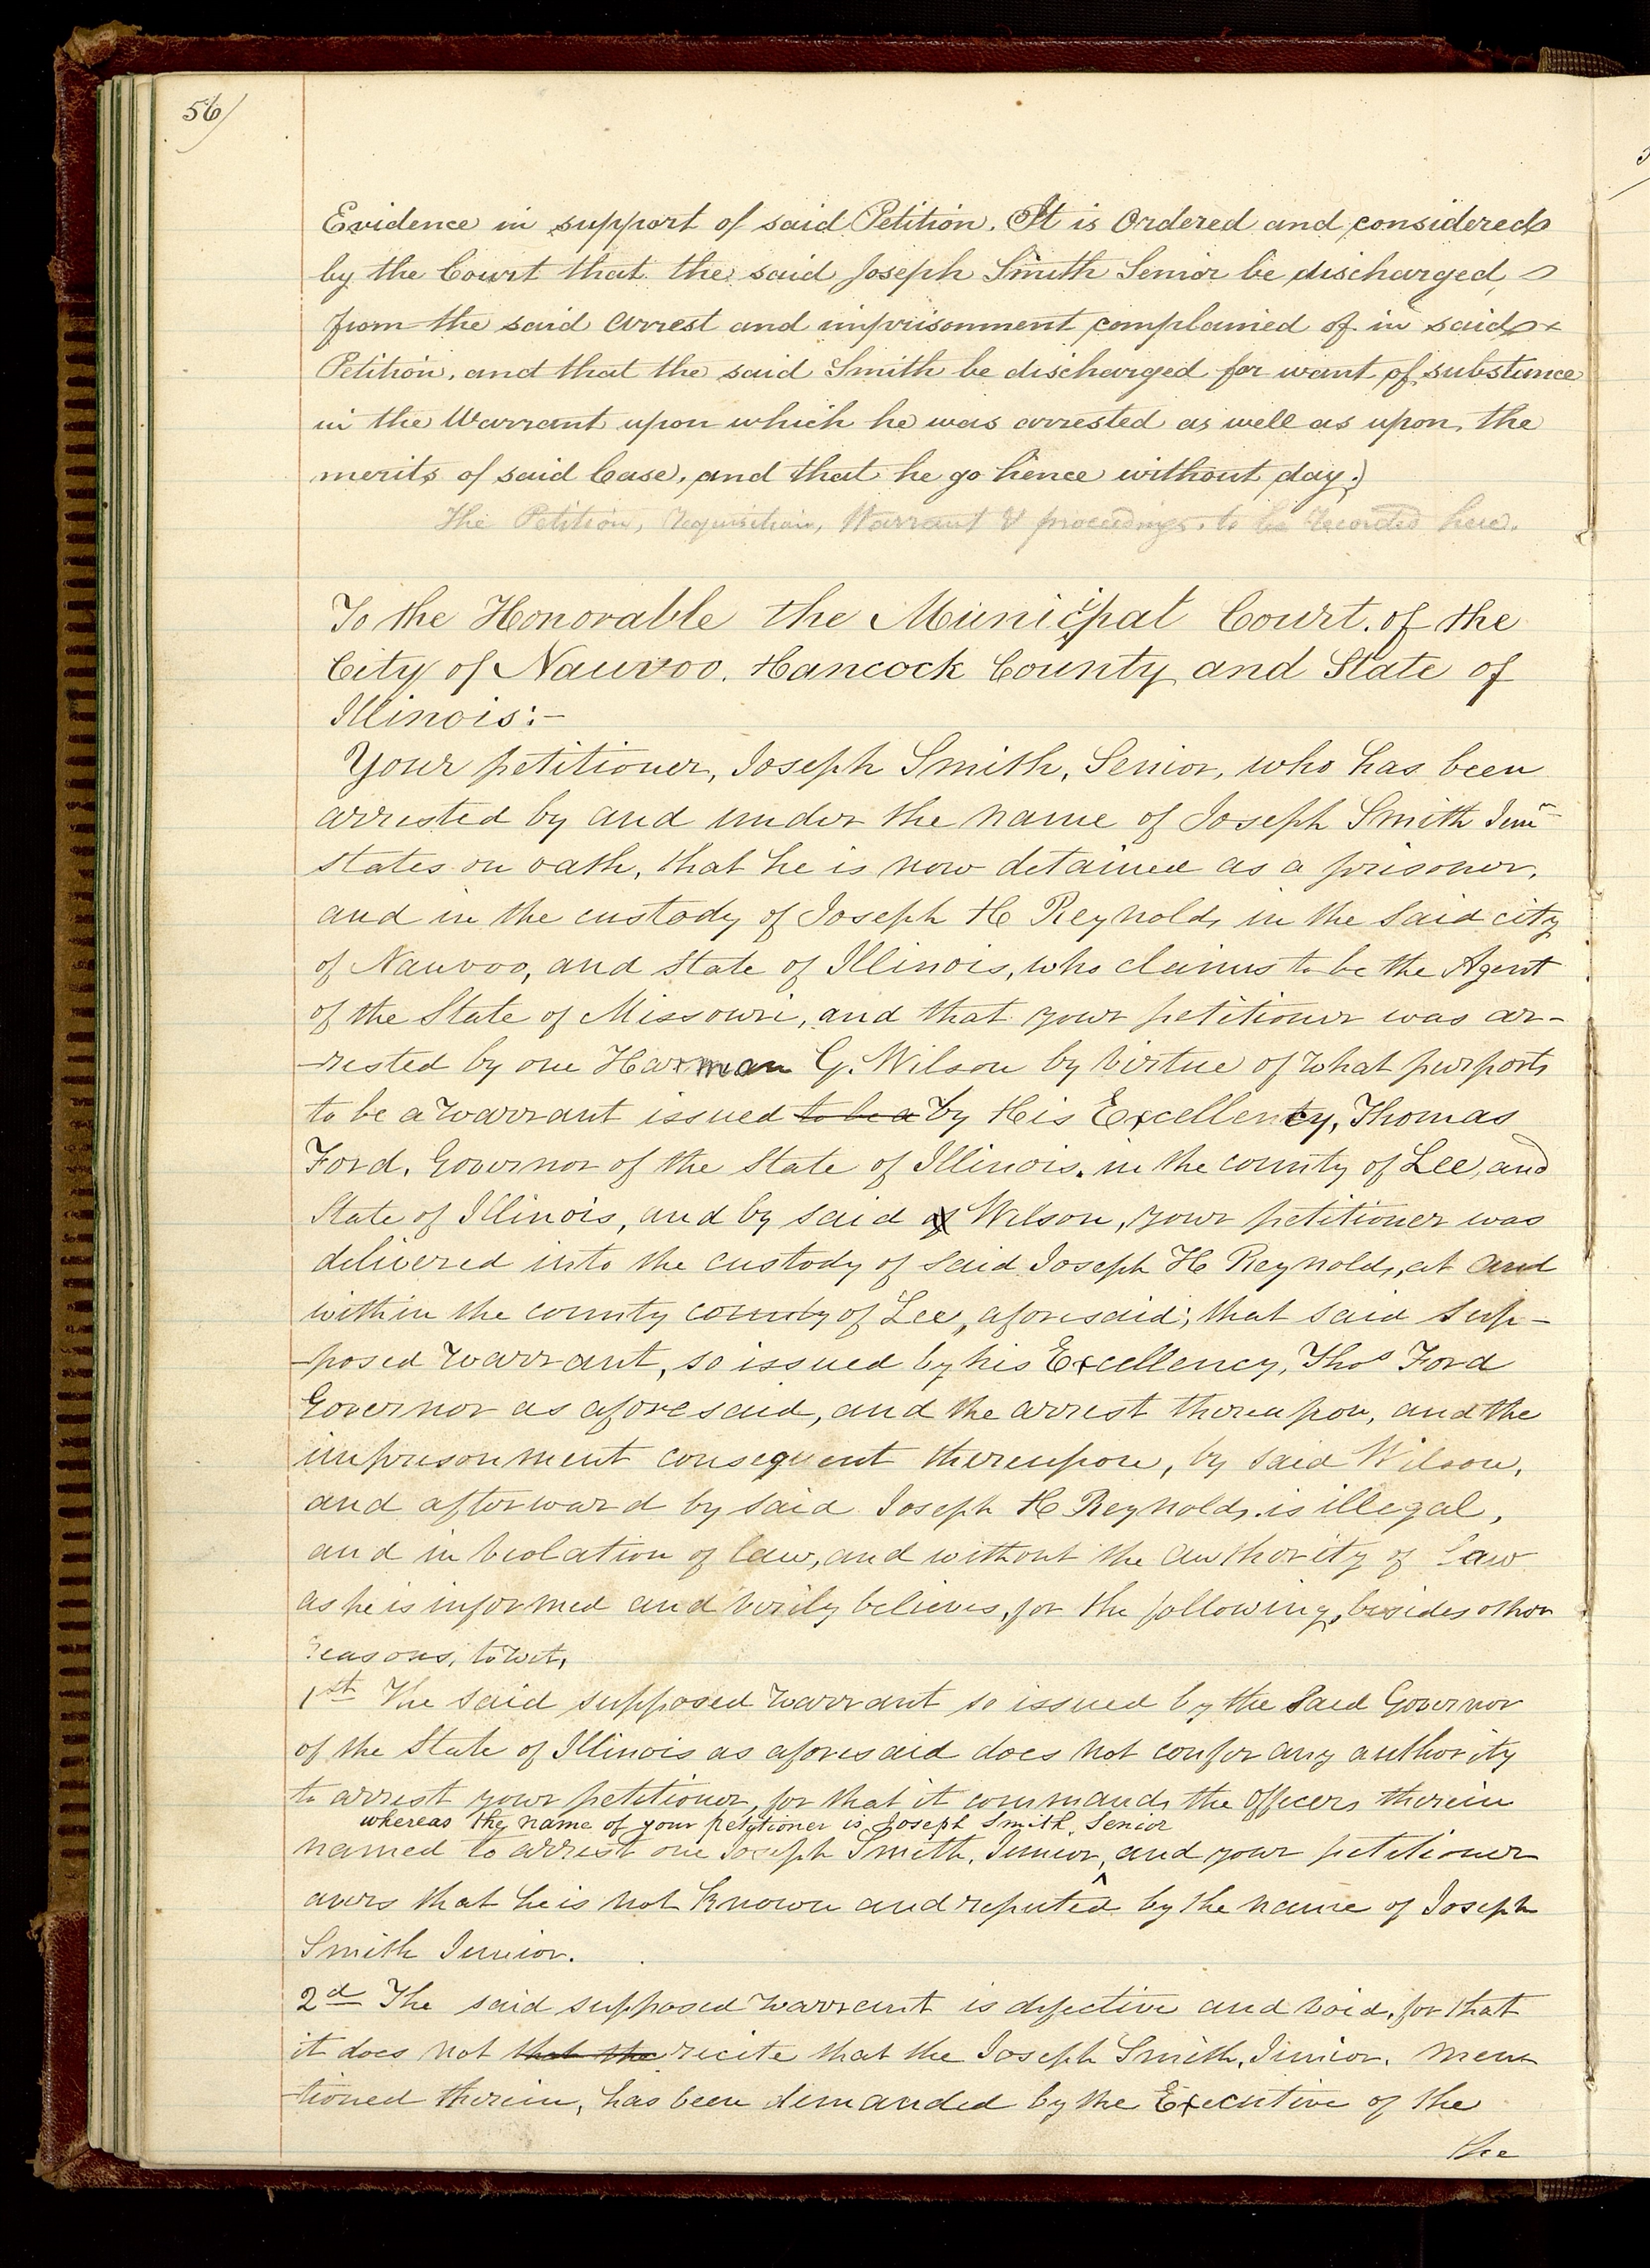 56/
Evidence in support of said Petition. It is Ordered and considered
by the Court that the said Joseph Smith Senior be discharged
from the said arrest and imprisonment complained of in said
Petition, and that the said Smith be discharged for want of substance
in the Warrant upon which he was arrested as well as upon the
merits of said Case, and that he go hence without day.
The Petition, requisition, Warrant & proceedings. to be recorded here.
To the Honorable the Municipal Court. of the
City of Nauvoo. Hancock County and State of
Illinois:-
Your petitioner, Joseph Smith, Senior, who has been
arrested by and under the name of Joseph Smith Junr
states on oath, that he is now detained as a prisoner,
and in the custody of Joseph H Reynolds in the said city
of Nauvoo, and State of Illinois, who claims to be the Agent
of the State of Missouri, and that your petitioner was ar-
-rested by one Harman G. Wilson by virtue of what purports
to be a warrant issued to be a by His Excellency, Thomas
Ford, Governor of the State of Illinois. in the county of Lee, and
State of Illinois, and by said of Wilson, your petitioner was
delivered into the custody of said Joseph H Reynolds, at and
within the county county of Lee, aforesaid; that said sup-
-posed warrant, so issued by his Excellency, Thos Ford
Governor as aforesaid, and the arrest thereupon, and the
imprisonment consequent thereupon, by said Wilson,
and afterward by said Joseph H Reynolds. is illegal,
and in violation of law, and without the authority of Law
as he is informed and verily believes, for the following, besides other
reasons, to wit,
1st The said supposed warrant so issued by the said Governor
of the State of Illinois as aforesaid does not confer any authority
to arrest your petitioner, for that it commands the officers therein
whereas the name of your petitioner is Joseph Smith, Senior
named to arrest one Joseph Smith, Junior, ^ and your petitioner
avers that he is not known and reputed by the name of Joseph
Smith Junior.
2d The said supposed warrant is defective and void, for that
it does not that the recite that the Joseph Smith, Junior. men
-tioned therein, has been demanded by the Executive of the
the